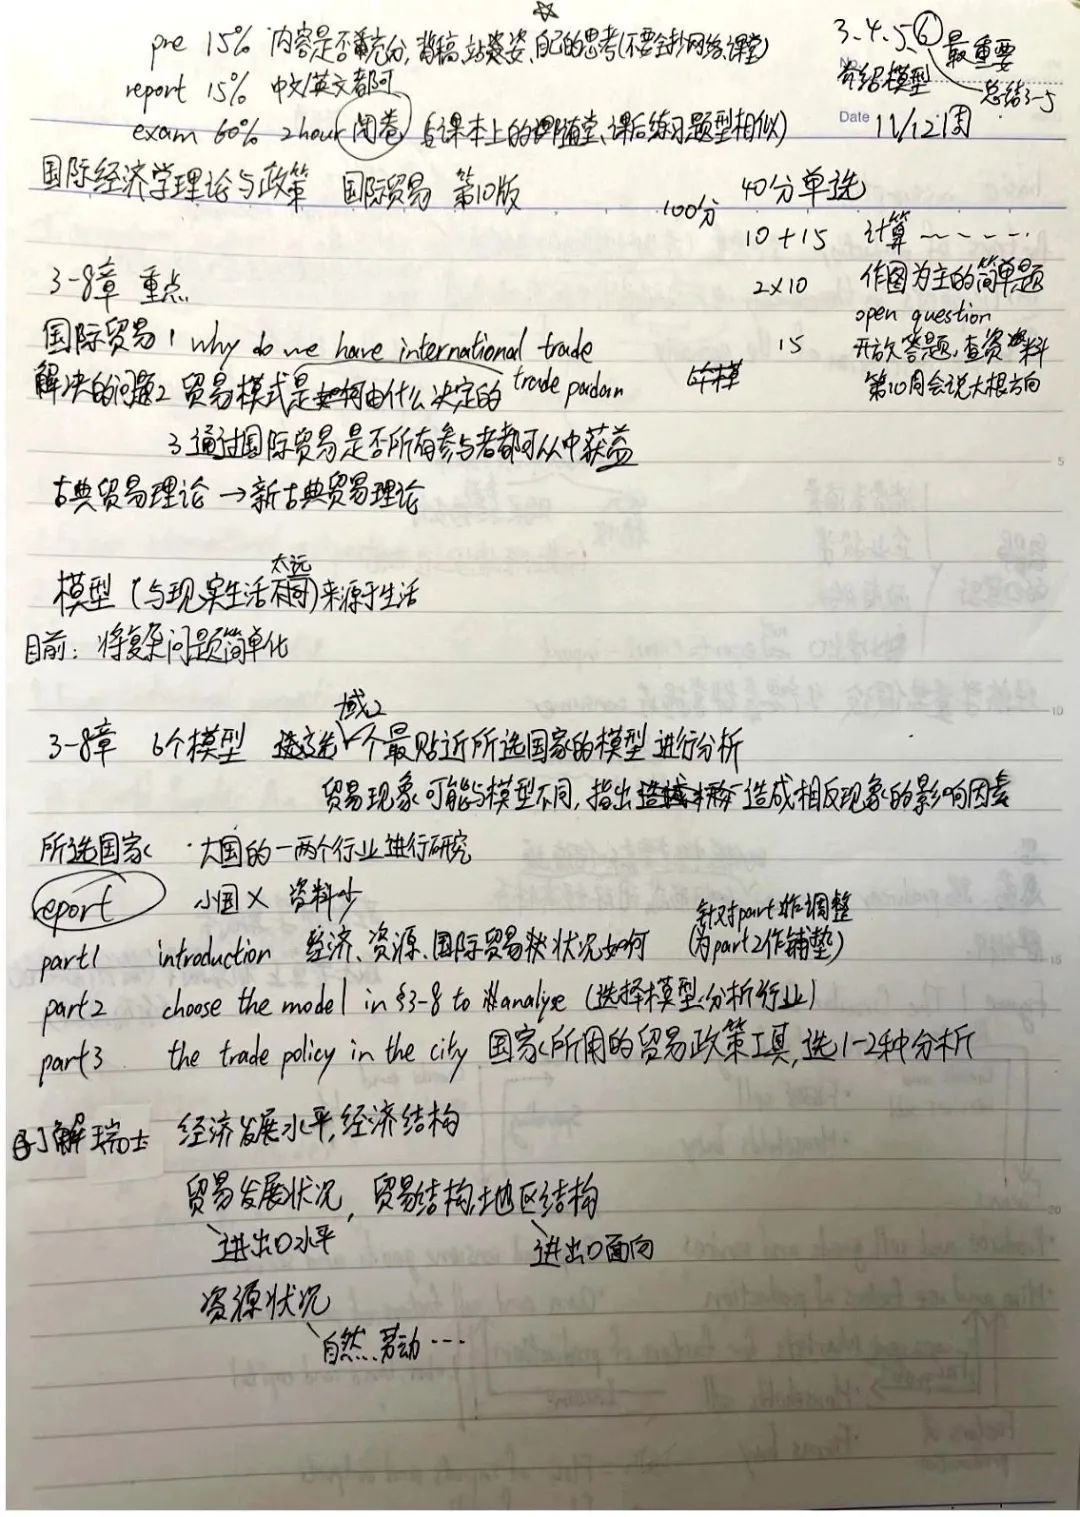 pre 15% 内容是否充分,背稿,站姿,自己的思考(不要全抄网络,课堂)
3.4.5.⑥ 最重要
介绍模型 总结3-5
report 15% 中文/英文都可
Date 11/12周
exam 60% 2hour 闭卷 (与课本上的随堂、课后练习题型相似)
国际经济学理论与政策 国际贸易 第10版
100分 40分单选
10+15 计算
3-8章 重点
2×10 作图为主的简单题
open question
国际贸易 1 why do we have international trade
15 开放答题,查资料
解决的问题2 贸易模式是由什么决定的 trade
第10周会说大根方向
3 通过国际贸易是否所有参与者都可从中获益
古典贸易理论 → 新古典贸易理论
太远
模型 (与现实生活不同)来源于生活
目前: 将复杂问题简单化
或2
3-8章 6个模型 选1个最贴近所选国家的模型 进行分析
贸易现象可能与模型不同,指出造成相反现象的影响因素
所选国家 · 大国的一两个行业进行研究
report 小国× 资料少
针对part2作调整
part1 introduction 经济、资源、国际贸易状况如何 (为part2作铺垫)
part2 choose the model in §3-8 to analyse (选择模型,分析行业)
part3 the trade policy in the city 国家所用的贸易政策工具,选1-2种分析
了解瑞士 经济发展水平,经济结构
贸易发展状况, 贸易结构,地区结构
进出口水平 进出口面向
资源状况
自然、劳动…